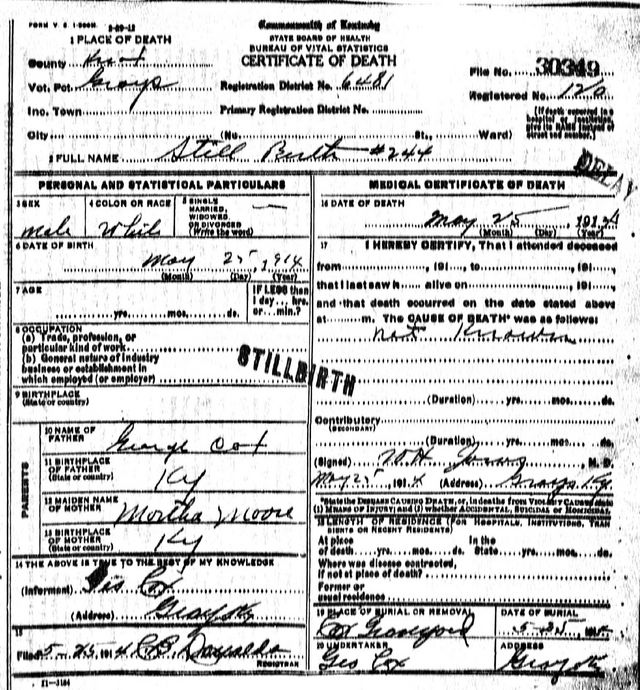 FORM V. S. 1-500M 5-29-12
Commonwealth of Kentucky
STATE BOARD OF HEALTH
BUREAU OF VITAL STATISTICS
CERTIFICATE OF DEATH
1 PLACE OF DEATH
County Knox
Vot. Pct Grays
Registration District No. 6481
File No. 30349
Registered No. 120
Inc. Town
Primary Registration District No.
City (No. St., Ward)
(If death occurred in a hospital or institution, give its NAME instead of street and number.)
2 FULL NAME Still Birth #244
DELAY
PERSONAL AND STATISTICAL PARTICULARS
3 SEX male
4 COLOR OR RACE White
5 SINGLE, MARRIED, WIDOWED, OR DIVORCED (Write the word) —
6 DATE OF BIRTH
May 25, 1914
(Month) (Day) (Year)
7 AGE
IF LESS than 1 day... hrs. or... min.?
yrs. mos. ds.
8 OCCUPATION
(a) Trade, profession, or particular kind of work
(b) General nature of industry business or establishment in which employed (or employer)
STILLBIRTH
9 BIRTHPLACE
(State or country)
PARENTS
10 NAME OF FATHER George Cox
11 BIRTHPLACE OF FATHER (State or country) Ky
12 MAIDEN NAME OF MOTHER Martha Moore
13 BIRTHPLACE OF MOTHER (State or country) Ky
14 THE ABOVE IS TRUE TO THE BEST OF MY KNOWLEDGE
(Informant) Geo Cox
(Address) Gray Ky
15
Filed 5-25 1914
REGISTRAR
11-3184
MEDICAL CERTIFICATE OF DEATH
16 DATE OF DEATH
May 25, 1914
(Month) (Day) (Year)
17 I HEREBY CERTIFY, That I attended deceased
from, 191, to, 191,
that I last saw h alive on, 191,
and that death occurred on the date stated above
at m. The CAUSE OF DEATH* was as follows:
not Known
(Duration) yrs. mos. ds.
Contributory
(SECONDARY)
(Duration) yrs. mos. ds.
(Signed) M. D.
May 25, 1914 (Address) Grays Ky.
*State the DISEASE CAUSING DEATH, or, in deaths from VIOLENT CAUSES state (1) MEANS OF INJURY; and (2) whether ACCIDENTAL, SUICIDAL or HOMICIDAL.
18 LENGTH OF RESIDENCE (FOR HOSPITALS, INSTITUTIONS, TRANSIENTS OR RECENT RESIDENTS)
At place of death yrs. mos. ds. In the State yrs. mos. ds.
Where was disease contracted, if not at place of death?
Former or usual residence
19 PLACE OF BURIAL OR REMOVAL Cox Graveyard
DATE OF BURIAL 5-25, 191
20 UNDERTAKER Geo Cox
ADDRESS Gray Ky